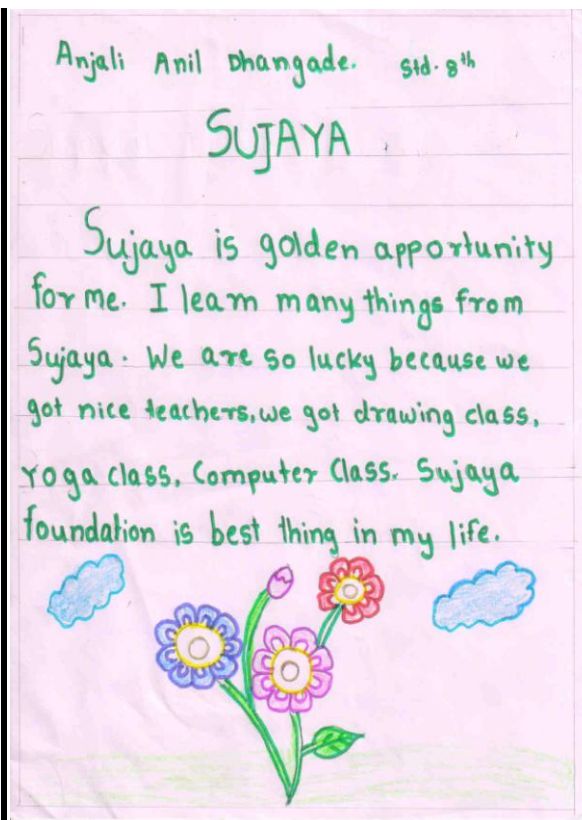 Anjali Anil Dhangade. Std. 8th
SUJAYA
Sujaya is golden apportunity
for me. I learn many things from
Sujaya. We are so lucky because we
got nice teachers, we got drawing class,
Yoga class, Computer Class. Sujaya
foundation is best thing in my life.